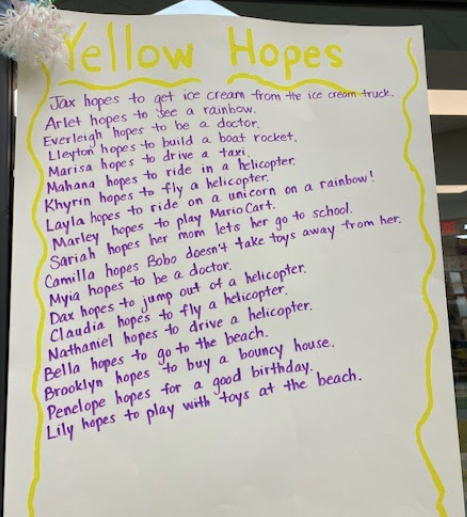 Yellow Hopes
Jax hopes to get ice cream from the ice cream truck.
Arlet hopes to see a rainbow.
Everleigh hopes to be a doctor.
Lleyton hopes to build a boat rocket.
Marisa hopes to drive a taxi.
Mahana hopes to ride in a helicopter.
Khyrin hopes to fly a helicopter.
Layla hopes to ride on a unicorn on a rainbow!
Marley hopes to play Mario Cart.
Sariah hopes her mom lets her go to school.
Camilla hopes Bobo doesn't take toys away from her.
Myia hopes to be a doctor.
Dax hopes to jump out of a helicopter.
Claudia hopes to fly a helicopter.
Nathaniel hopes to drive a helicopter.
Bella hopes to go to the beach.
Brooklyn hopes to buy a bouncy house.
Penelope hopes for a good birthday.
Lily hopes to play with toys at the beach.